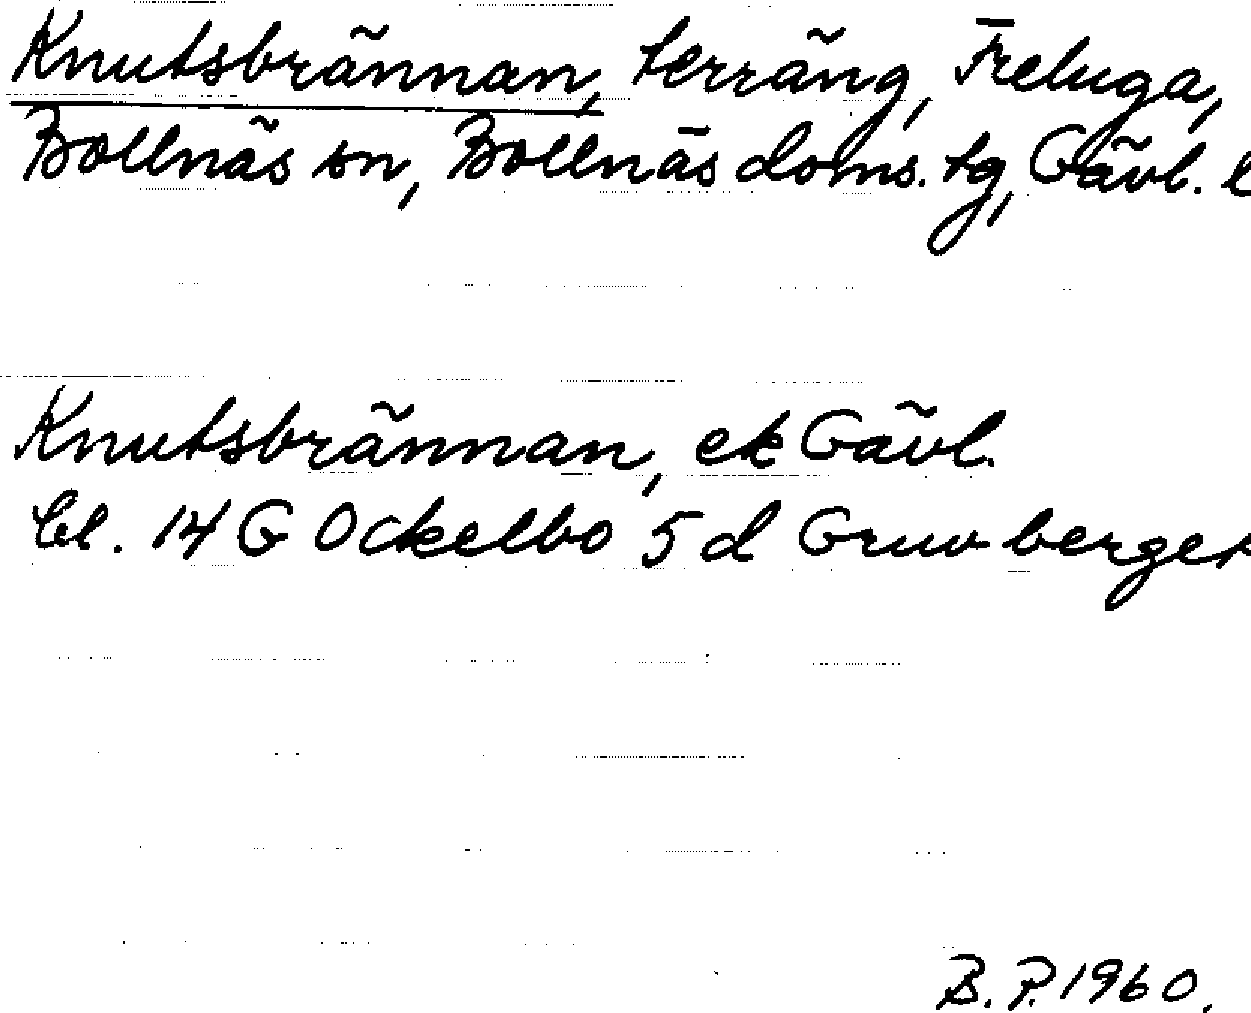 Knutsbrännan, terräng, Freluga,
Bollnäs sn, Bollnäs doms. tg, Gävl. l
Knutsbrännan, ek Gävl.
bl. 14 G Ockelbo 5 d Gruvberget
B. P. 1960.